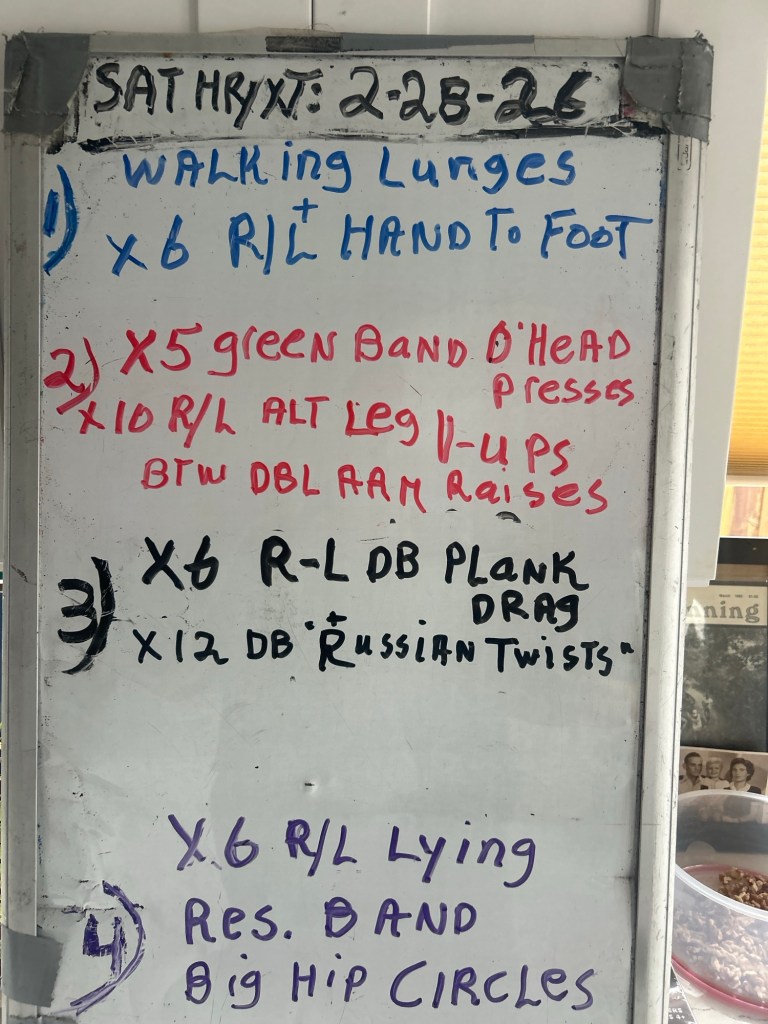 SAT HR/XT: 2-28-26
1) WALKing Lunges
+
X6 R/L HAND To FOOT
2) X5 green BanD O'HeAD
Presses
X10 R/L ALT Leg V-UPS
BTW DBL ARM Raises
3) X6 R-L DB PLanK
DRAg
+
X12 DB "RussiAN Twists"
4) X6 R/L Lying
Res. BAND
Big Hip CIRCLes
ning